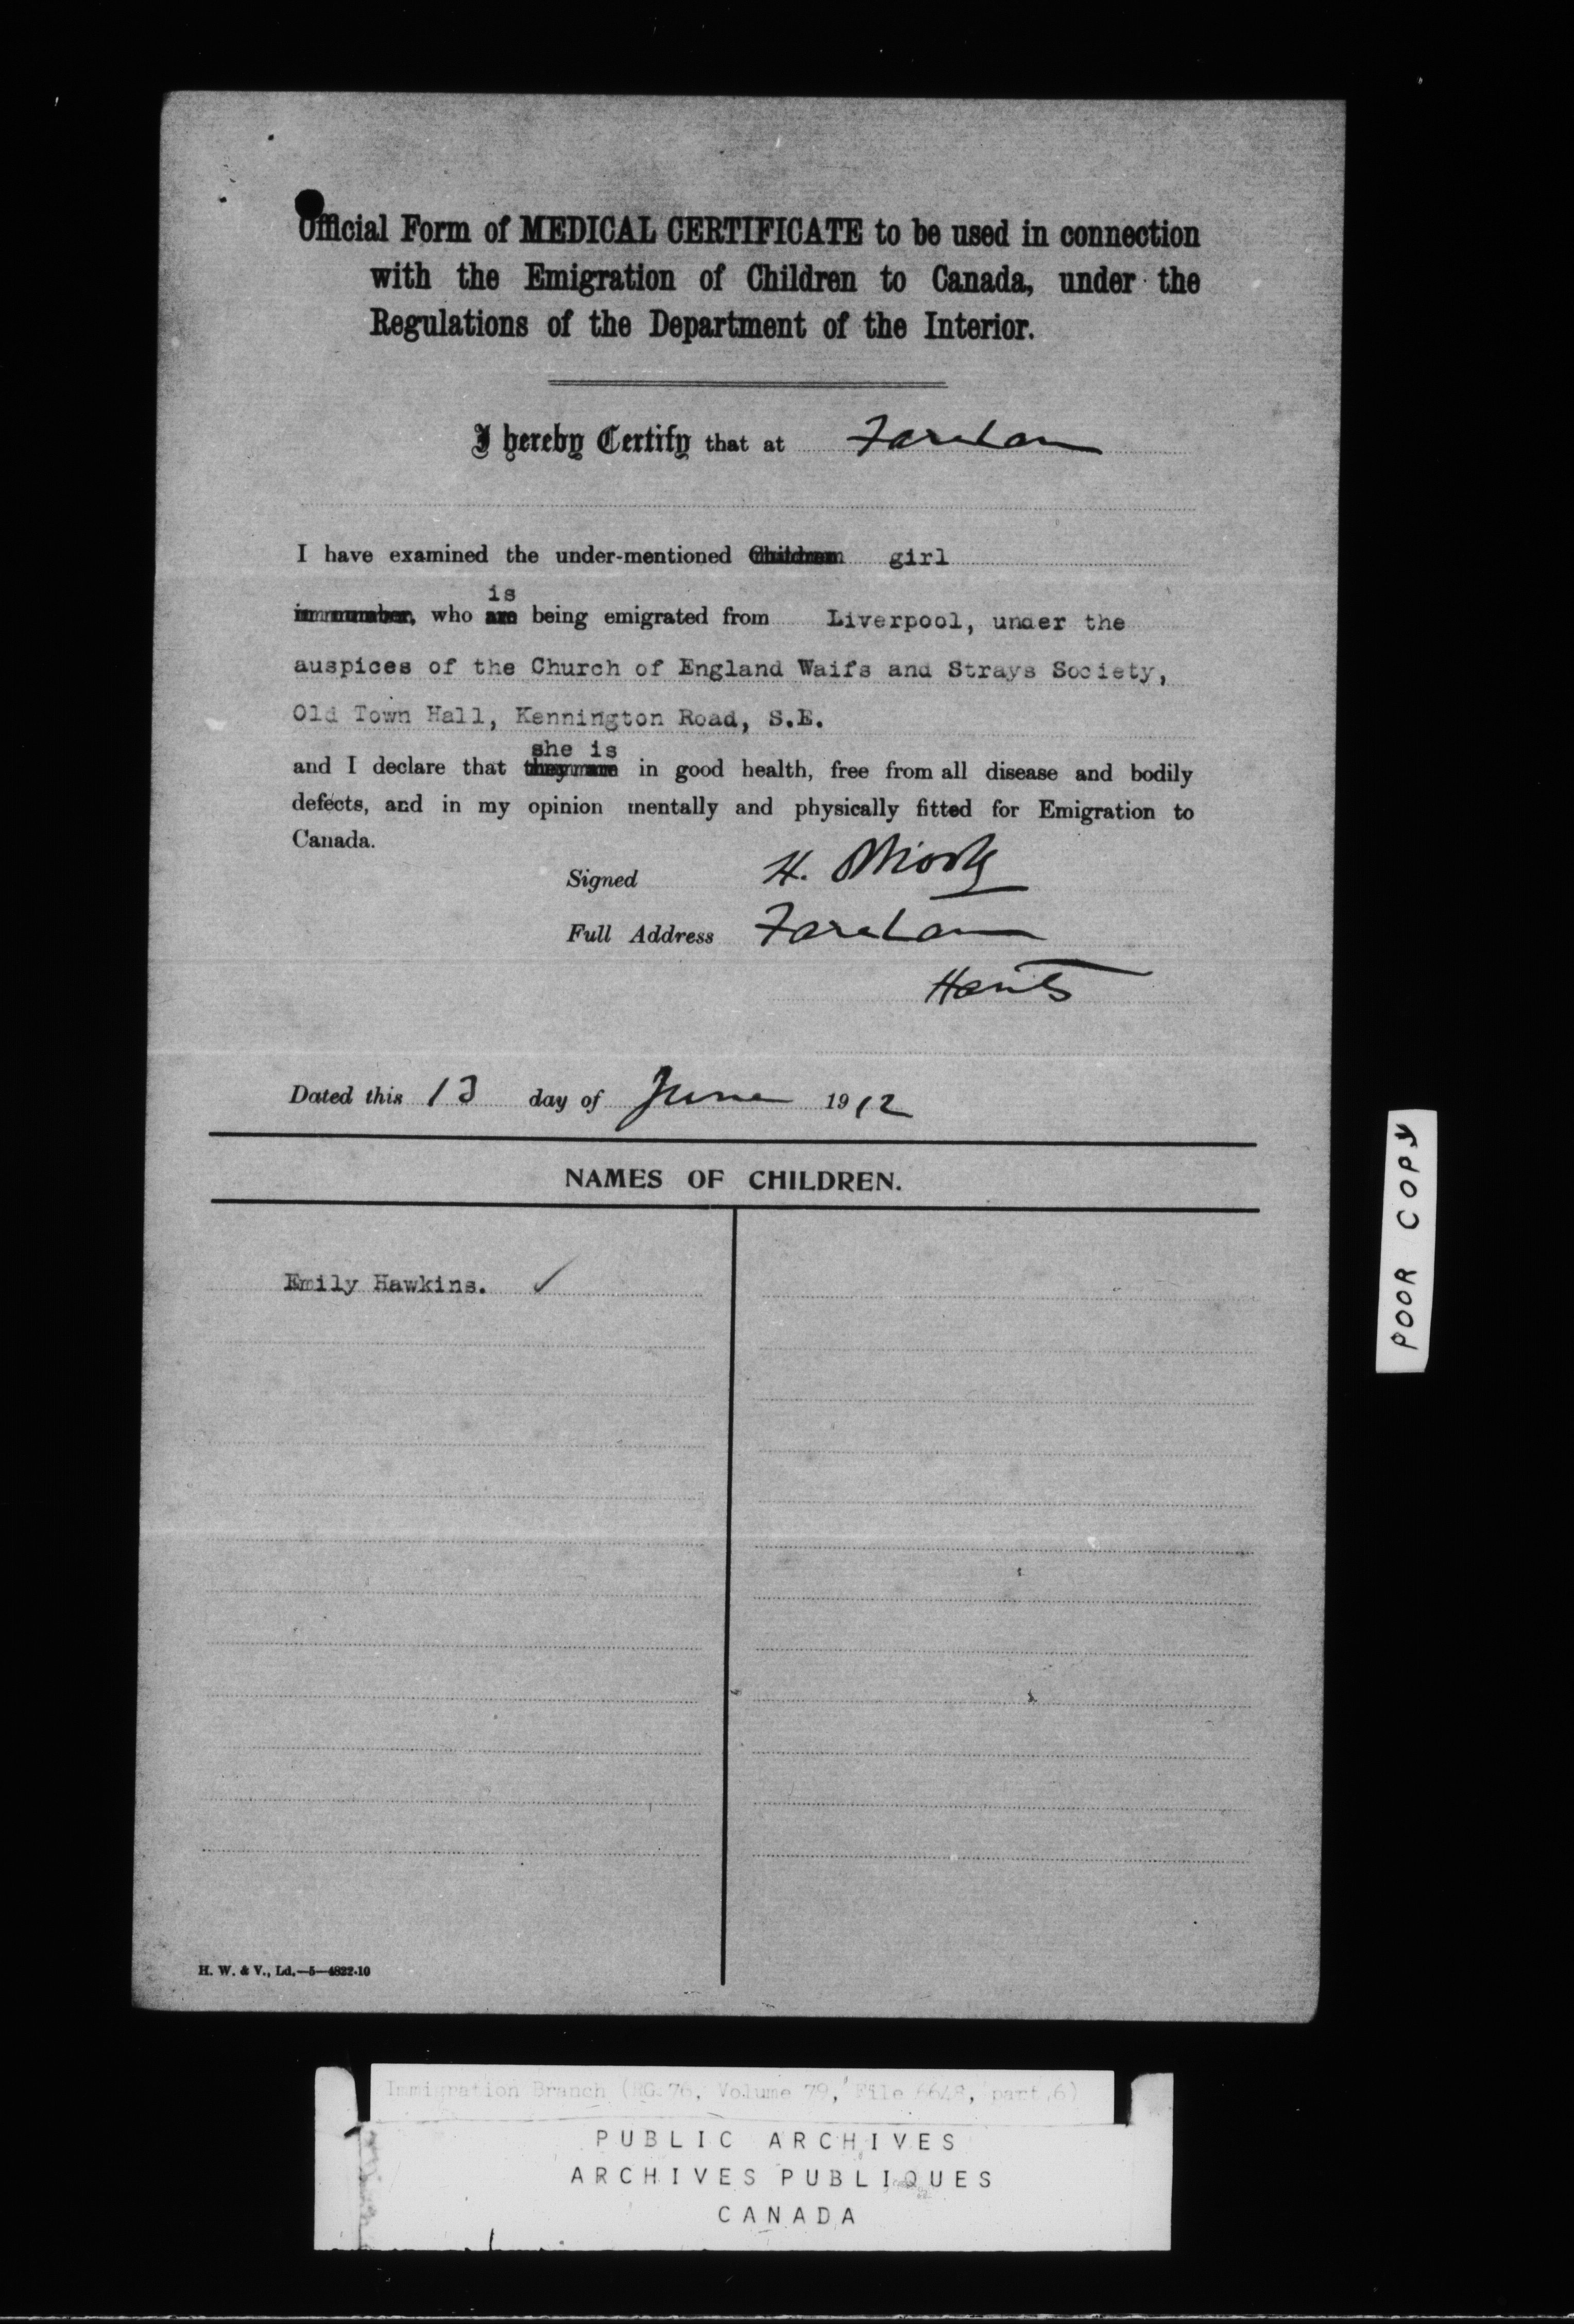 Official Form of MEDICAL CERTIFICATE to be used in connection
with the Emigration of Children to Canada, under the
Regulations of the Department of the Interior.
I hereby Certify that at Fareham
I have examined the under-mentioned Children girl
is
in number, who are being emigrated from Liverpool, under the
auspices of the Church of England Waifs and Strays Society,
Old Town Hall, Kennington Road, S.E.
she is
and I declare that they are in good health, free from all disease and bodily
defects, and in my opinion mentally and physically fitted for Emigration to
Canada.
Signed H.
Full Address Fareham
Hants
Dated this 13 day of June 1912
NAMES OF CHILDREN.
Emily Hawkins. ✓
H. W. & V., Ld.—5—4822-10
POOR COPY
Immigration Branch (RG 76, Volume 79, File 6648, part 6)
PUBLIC ARCHIVES
ARCHIVES PUBLIQUES
CANADA